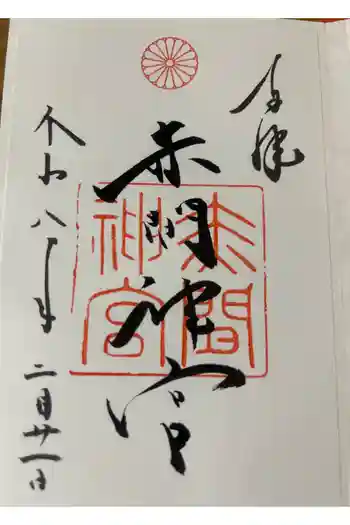 奉拝
赤間神宮
赤間
神宮
令和八年二月廿一日